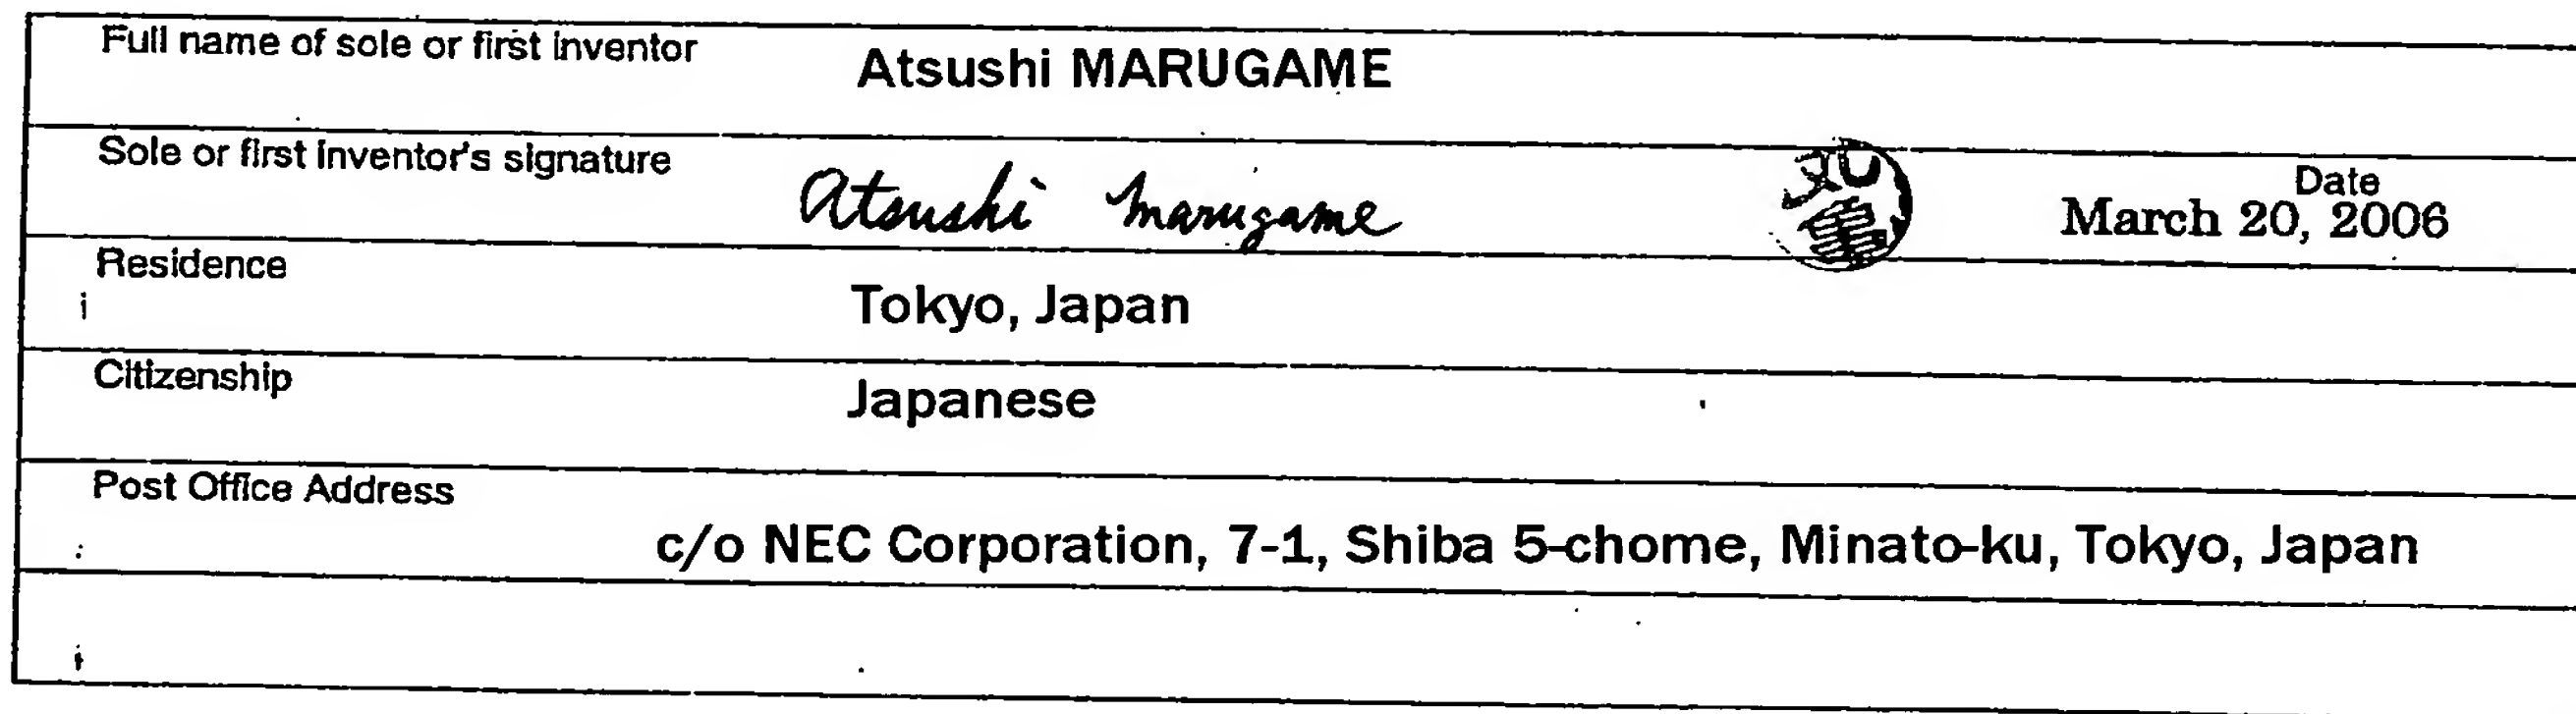 Full name of sole or first inventor
Atsushi MARUGAME
Sole or first inventor's signature
Atsushi Marugame
Date
March 20, 2006
Residence
Tokyo, Japan
Citizenship
Japanese
Post Office Address
c/o NEC Corporation, 7-1, Shiba 5-chome, Minato-ku, Tokyo, Japan